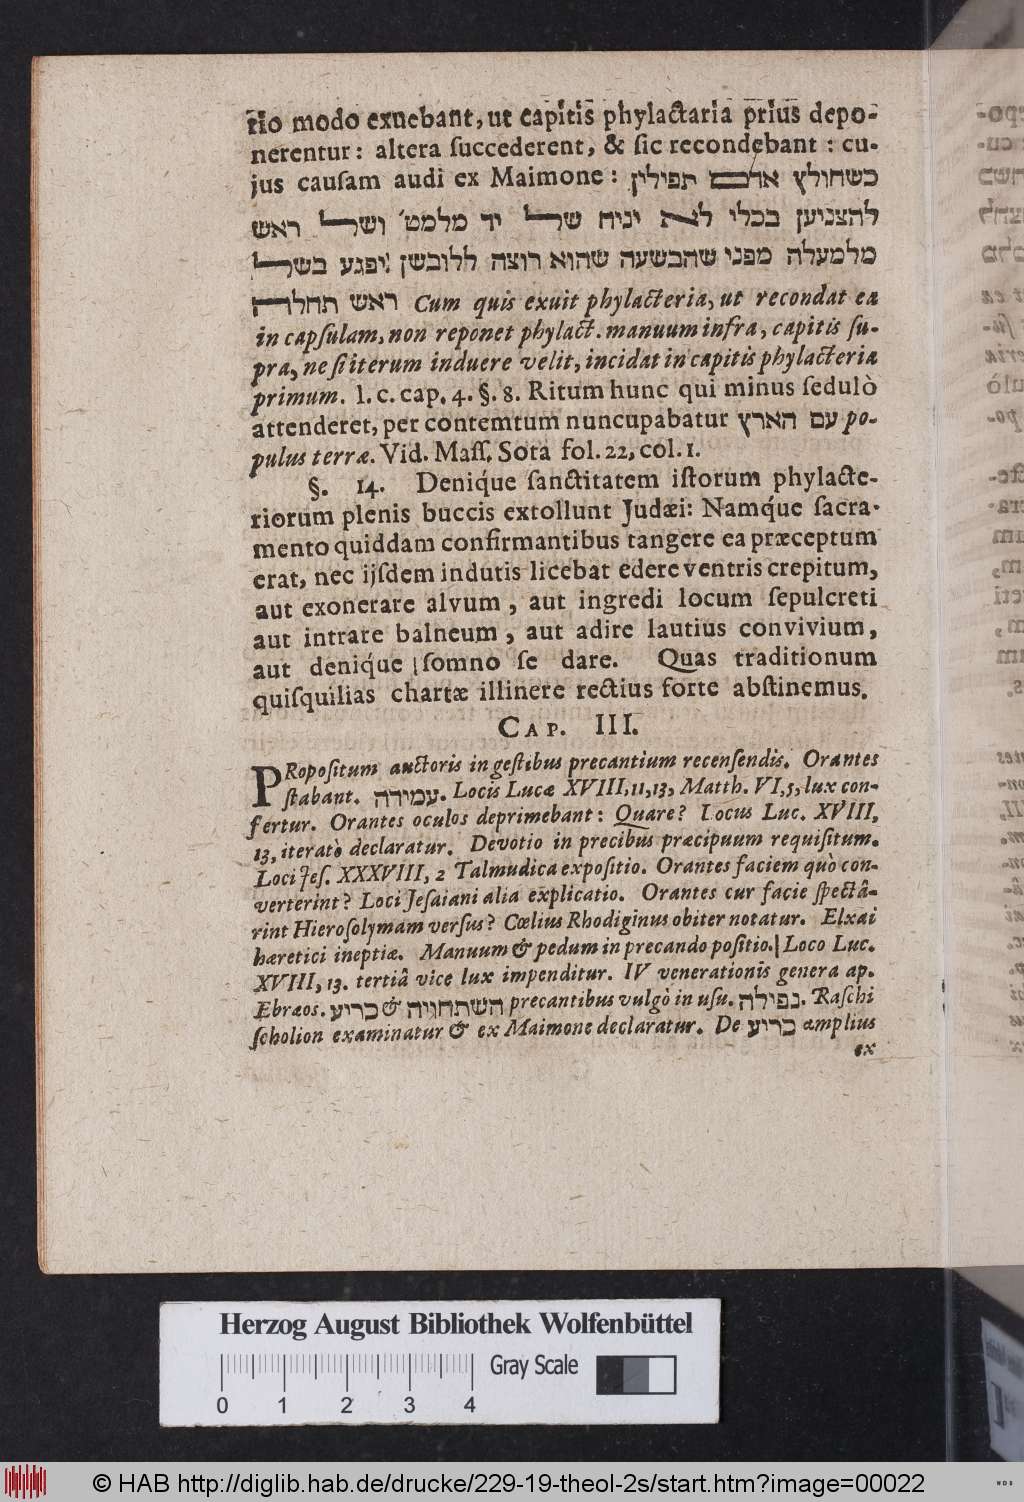 rio modo exuebant, ut capitis phylactaria prius depo-
nerentur: altera succederent, & sic recondebant : cu-
jus causam audi ex Maimone: כשחולץ אדם תפילין
להצניען בכלי לא יניח של יד מלמט׳ ושל ראש
מלמעלה מפני שהבשעה שהוא רוצה ללובשן יפגע בשל
ראש תחלה Cum quis exuit phylacteria, ut recondat ea
in capſulam, non reponet phylact. manuum infra, capitis ſu-
pra, ne ſi iterum induere velit, incidat in capitis phylacteria
primum. l. c. cap. 4. §. 8. Ritum hunc qui minus ſedulò
attenderet, per contemtum nuncupabatur עם הארץ po-
pulus terræ. Vid. Maſſ. Sota fol. 22, col. 1.
§. 14. Deniq́ue ſanctitatem iſtorum phylacte-
riorum plenis buccis extollunt Judæi: Namq́ue ſacra-
mento quiddam confirmantibus tangere ea præceptum
erat, nec ijſdem indutis licebat edere ventris crepitum,
aut exonerare alvum, aut ingredi locum ſepulcreti
aut intrare balneum, aut adire lautius convivium,
aut deniq́ue ſomno ſe dare. Quas traditionum
quiſquilias chartæ illinere rectius forte abſtinemus.
CAP. III.
PRopoſitum auctoris in geſtibus precantium recenſendis. Orantes
ſtabant. עמידה. Locis Lucæ XVIII, 11, 13, Matth. VI, 5, lux con-
fertur. Orantes oculos deprimebant: Quare? Locus Luc. XVIII,
13, iteratò declaratur. Devotio in precibus præcipuum requiſitum.
Loci Jeſ. XXXVIII, 2 Talmudica expoſitio. Orantes faciem quò con-
verterint? Loci Jeſaiani alia explicatio. Orantes cur facie ſpectâ-
rint Hieroſolymam verſus? Cœlius Rhodiginus obiter notatur. Elxai
hæretici ineptiæ. Manuum & pedum in precando poſitio. Loco Luc.
XVIII, 13. tertiâ vice lux impenditur. IV venerationis genera ap.
Ebræos. כריע & השתחויה precantibus vulgò in uſu. נפילה. Raſchi
ſcholion examinatur & ex Maimone declaratur. De כריע amplius
ex
Herzog August Bibliothek Wolfenbüttel
Gray Scale
0 1 2 3 4
© HAB http://diglib.hab.de/drucke/229-19-theol-2s/start.htm?image=00022